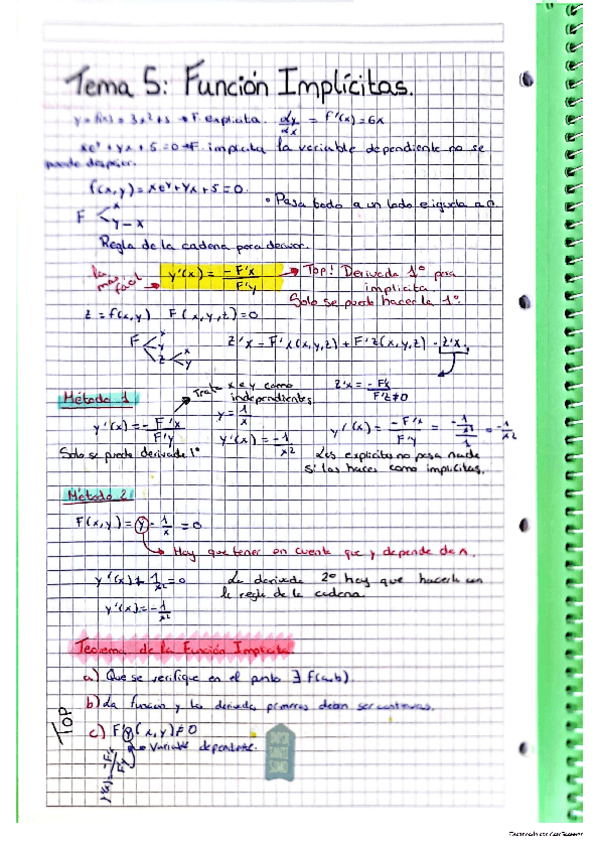 Tema 5: Función Implícitas.
y = f(x) = 3x²+5 → F. explicita. dy/dx = f'(x) = 6x
xeʸ + yx + 5 = 0 → F. implicita la variable dependiente no se
puede despejar.
f(x,y) = xeʸ + yx + 5 = 0.
• Pasa todo a un lado e iguala a 0.
F < x
y - x
Regla de la cadena para derivar.
la mas facil → y'(x) = -F'x / F'y → Top! Derivada 1º para
implicita.
Solo se puede hacer la 1º.
z = f(x,y) F(x,y,z) = 0
F < x y z < x y
z'x = -F'x / F'z ≠ 0
Método 1
Trata x e y como
independientes
y'(x) = - F'x / F'y
y = 1/x
y'(x) = -1/x²
y'(x) = -F'x / F'y = = -1/x²
Solo se puede derivada 1º
Las explicitas no pasa nada
si las haces como implicitas.
Método 2
F(x,y) = y - 1/x = 0
→ Hay que tener en cuenta que y depende de x.
y'(x) + 1/x² = 0
La derivada 2º hay que hacerla con
la regla de la cadena.
y'(x) = -1/x²
Teorema de la Función Implicita
a) Que se verifique en el punto ∃ f(a,b).
b) La funcion y las derivadas primeras deban ser continuas.
TOP
c) F'y (x,y) ≠ 0
→ Variable dependiente.
y'(x) = -F'x / F'y